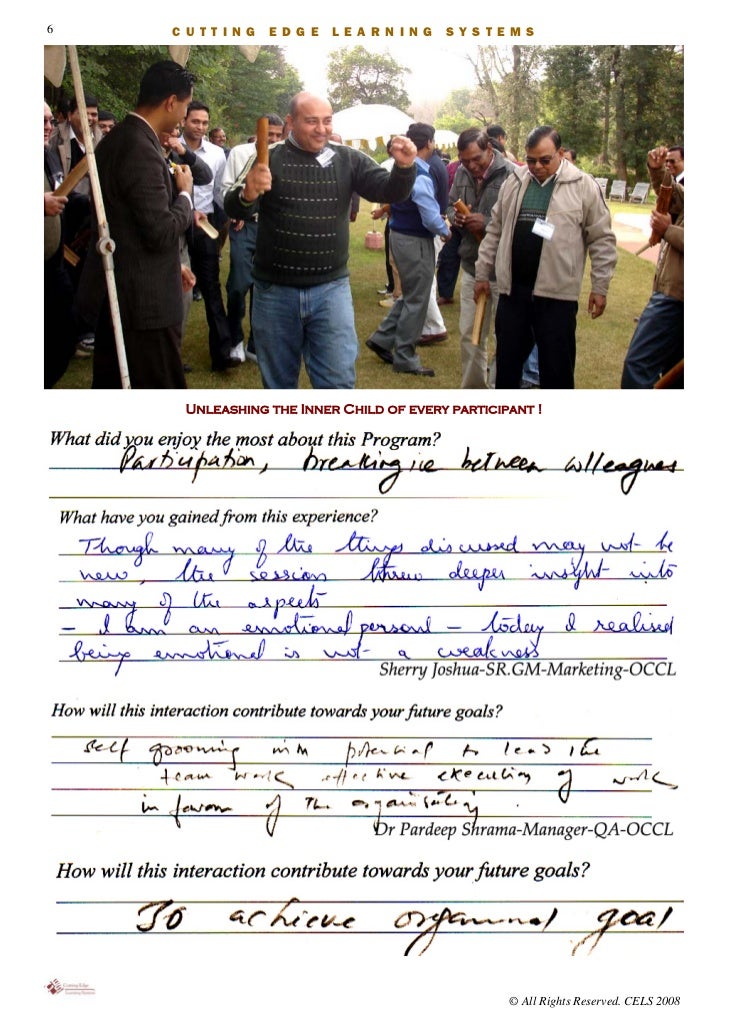 6
CUTTING EDGE LEARNING SYSTEMS
Unleashing the Inner Child of every participant !
What did you enjoy the most about this Program?
Participation, breaking ice between colleagues
What have you gained from this experience?
Though many of the things discussed may not be
new, the session threw deeper insight into
many of the aspects
- I am an emotional person - today I realised
being emotional is not a weakness
Sherry Joshua-SR.GM-Marketing-OCCL
How will this interaction contribute towards your future goals?
self grooming with potential to lead the
team work effective execution of work
in favour of the organisation.
Dr Pardeep Shrama-Manager-QA-OCCL
How will this interaction contribute towards your future goals?
To achieve goal
Cutting Edge
Learning Systems
© All Rights Reserved. CELS 2008